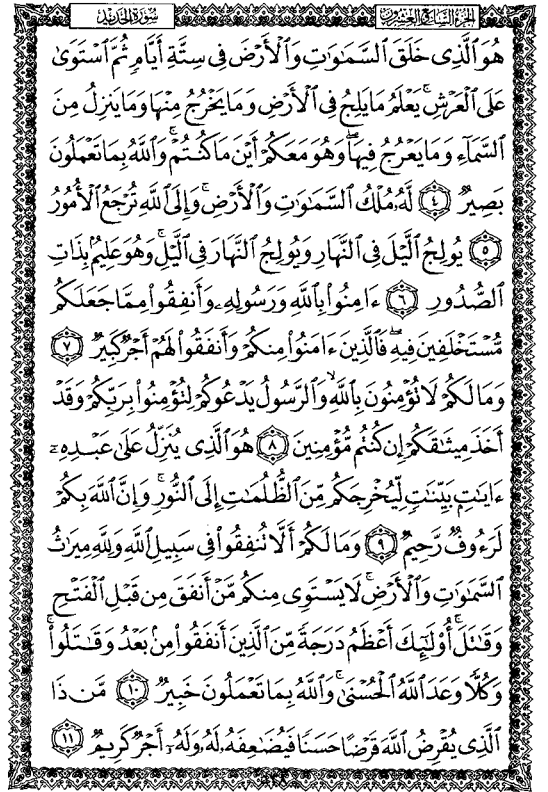 الجزء السابع والعشرون سورة الحديد
هُوَ ٱلَّذِى خَلَقَ ٱلسَّمَٰوَٰتِ وَٱلْأَرْضَ فِى سِتَّةِ أَيَّامٍ ثُمَّ ٱسْتَوَىٰ
عَلَى ٱلْعَرْشِ ۚ يَعْلَمُ مَا يَلِجُ فِى ٱلْأَرْضِ وَمَا يَخْرُجُ مِنْهَا وَمَا يَنزِلُ مِنَ
ٱلسَّمَآءِ وَمَا يَعْرُجُ فِيهَا ۖ وَهُوَ مَعَكُمْ أَيْنَ مَا كُنتُمْ ۚ وَٱللَّهُ بِمَا تَعْمَلُونَ
بَصِيرٌ ﴿٤﴾ لَّهُۥ مُلْكُ ٱلسَّمَٰوَٰتِ وَٱلْأَرْضِ ۚ وَإِلَى ٱللَّهِ تُرْجَعُ ٱلْأُمُورُ
﴿٥﴾ يُولِجُ ٱلَّيْلَ فِى ٱلنَّهَارِ وَيُولِجُ ٱلنَّهَارَ فِى ٱلَّيْلِ ۚ وَهُوَ عَلِيمٌۢ بِذَاتِ
ٱلصُّدُورِ ﴿٦﴾ ءَامِنُوا۟ بِٱللَّهِ وَرَسُولِهِۦ وَأَنفِقُوا۟ مِمَّا جَعَلَكُم
مُّسْتَخْلَفِينَ فِيهِ ۖ فَٱلَّذِينَ ءَامَنُوا۟ مِنكُمْ وَأَنفَقُوا۟ لَهُمْ أَجْرٌ كَبِيرٌ ﴿٧﴾
وَمَا لَكُمْ لَا تُؤْمِنُونَ بِٱللَّهِ ۙ وَٱلرَّسُولُ يَدْعُوكُمْ لِتُؤْمِنُوا۟ بِرَبِّكُمْ وَقَدْ
أَخَذَ مِيثَٰقَكُمْ إِن كُنتُم مُّؤْمِنِينَ ﴿٨﴾ هُوَ ٱلَّذِى يُنَزِّلُ عَلَىٰ عَبْدِهِۦٓ
ءَايَٰتٍۭ بَيِّنَٰتٍ لِّيُخْرِجَكُم مِّنَ ٱلظُّلُمَٰتِ إِلَى ٱلنُّورِ ۚ وَإِنَّ ٱللَّهَ بِكُمْ
لَرَءُوفٌ رَّحِيمٌ ﴿٩﴾ وَمَا لَكُمْ أَلَّا تُنفِقُوا۟ فِى سَبِيلِ ٱللَّهِ وَلِلَّهِ مِيرَٰثُ
ٱلسَّمَٰوَٰتِ وَٱلْأَرْضِ ۚ لَا يَسْتَوِى مِنكُم مَّنْ أَنفَقَ مِن قَبْلِ ٱلْفَتْحِ
وَقَٰتَلَ ۚ أُو۟لَٰٓئِكَ أَعْظَمُ دَرَجَةً مِّنَ ٱلَّذِينَ أَنفَقُوا۟ مِنۢ بَعْدُ وَقَٰتَلُوا۟ ۚ
وَكُلًّا وَعَدَ ٱللَّهُ ٱلْحُسْنَىٰ ۚ وَٱللَّهُ بِمَا تَعْمَلُونَ خَبِيرٌ ﴿١٠﴾ مَّن ذَا
ٱلَّذِى يُقْرِضُ ٱللَّهَ قَرْضًا حَسَنًا فَيُضَٰعِفَهُۥ لَهُۥ وَلَهُۥٓ أَجْرٌ كَرِيمٌ ﴿١١﴾